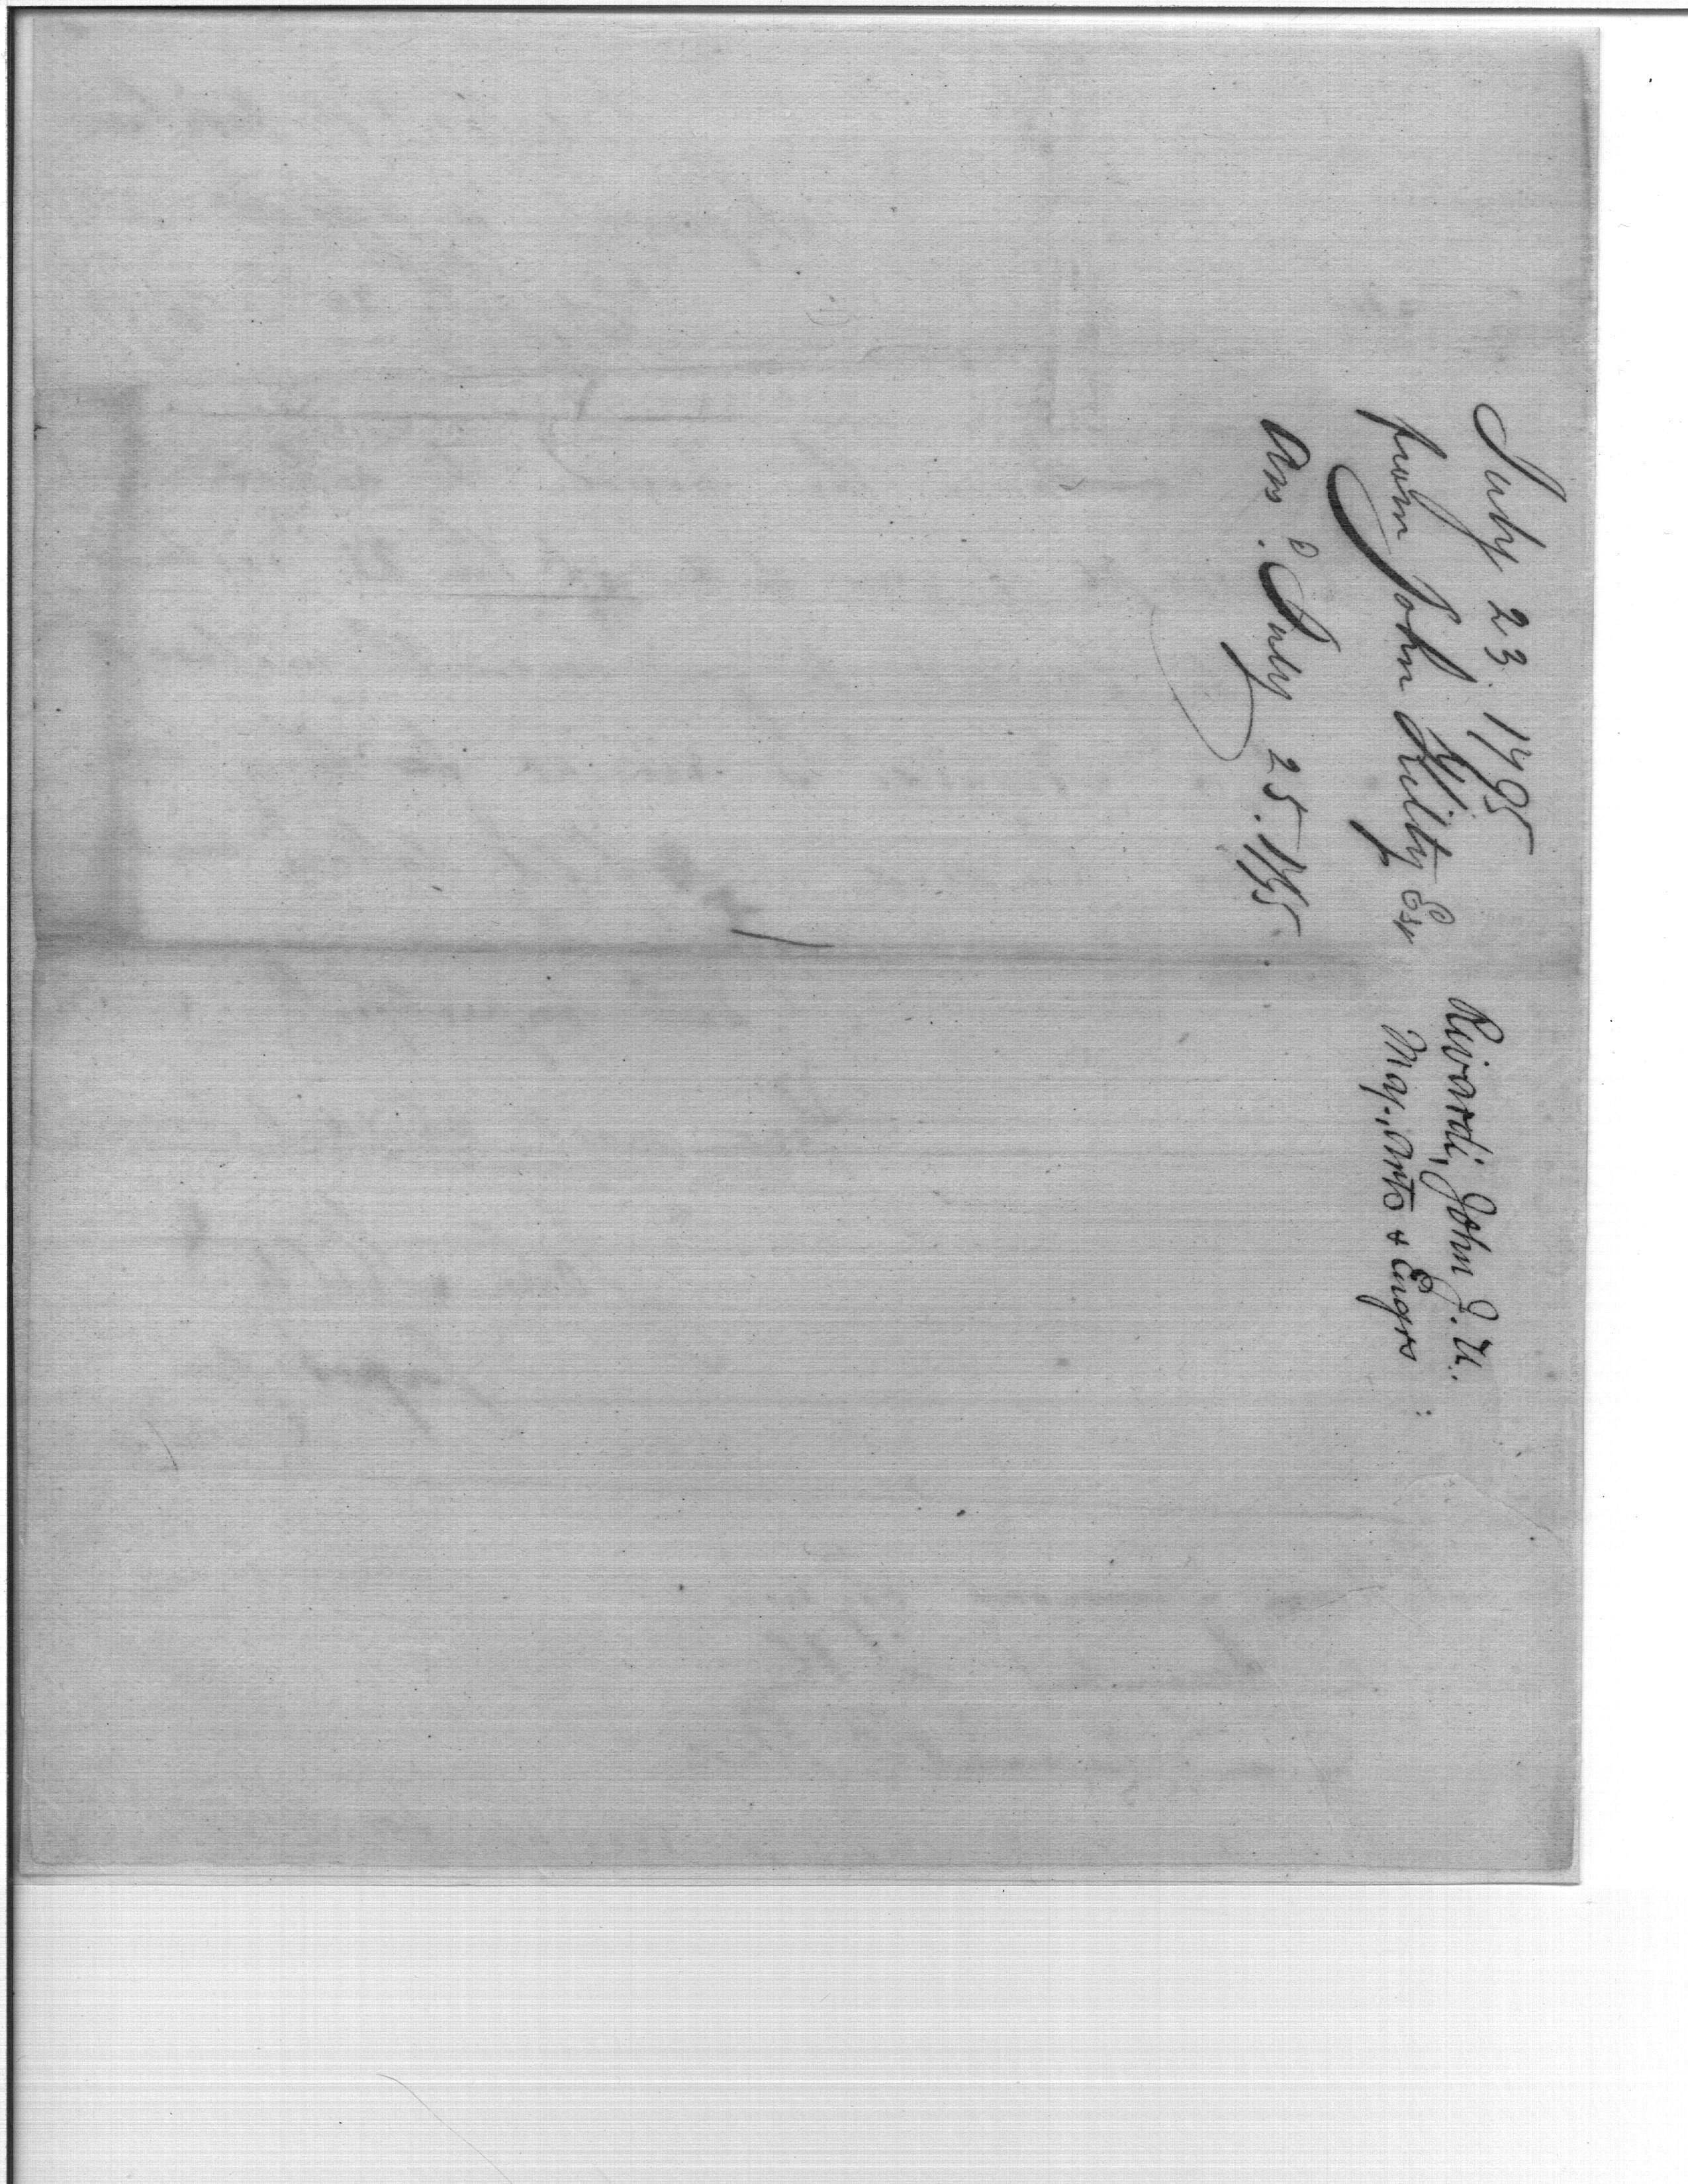 July 23. 1795
from John Kilty Esr
Ansd. July 25. 1795.
Rivardi, John J. U.
Maj. Arts & Engrs